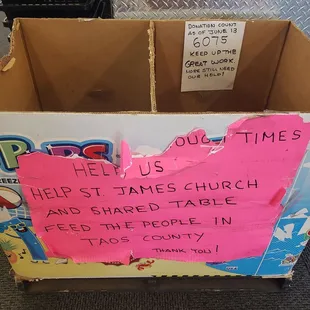 DONATION COUNT
AS OF JUNE 13
6075
KEEP UP THE
GREAT WORK
OUR HELP!
TIMES
HELP US
HELP ST. JAMES CHURCH
AND SHARED TABLE
FEED THE PEOPLE IN
TAOS COUNTY
THANK YOU!